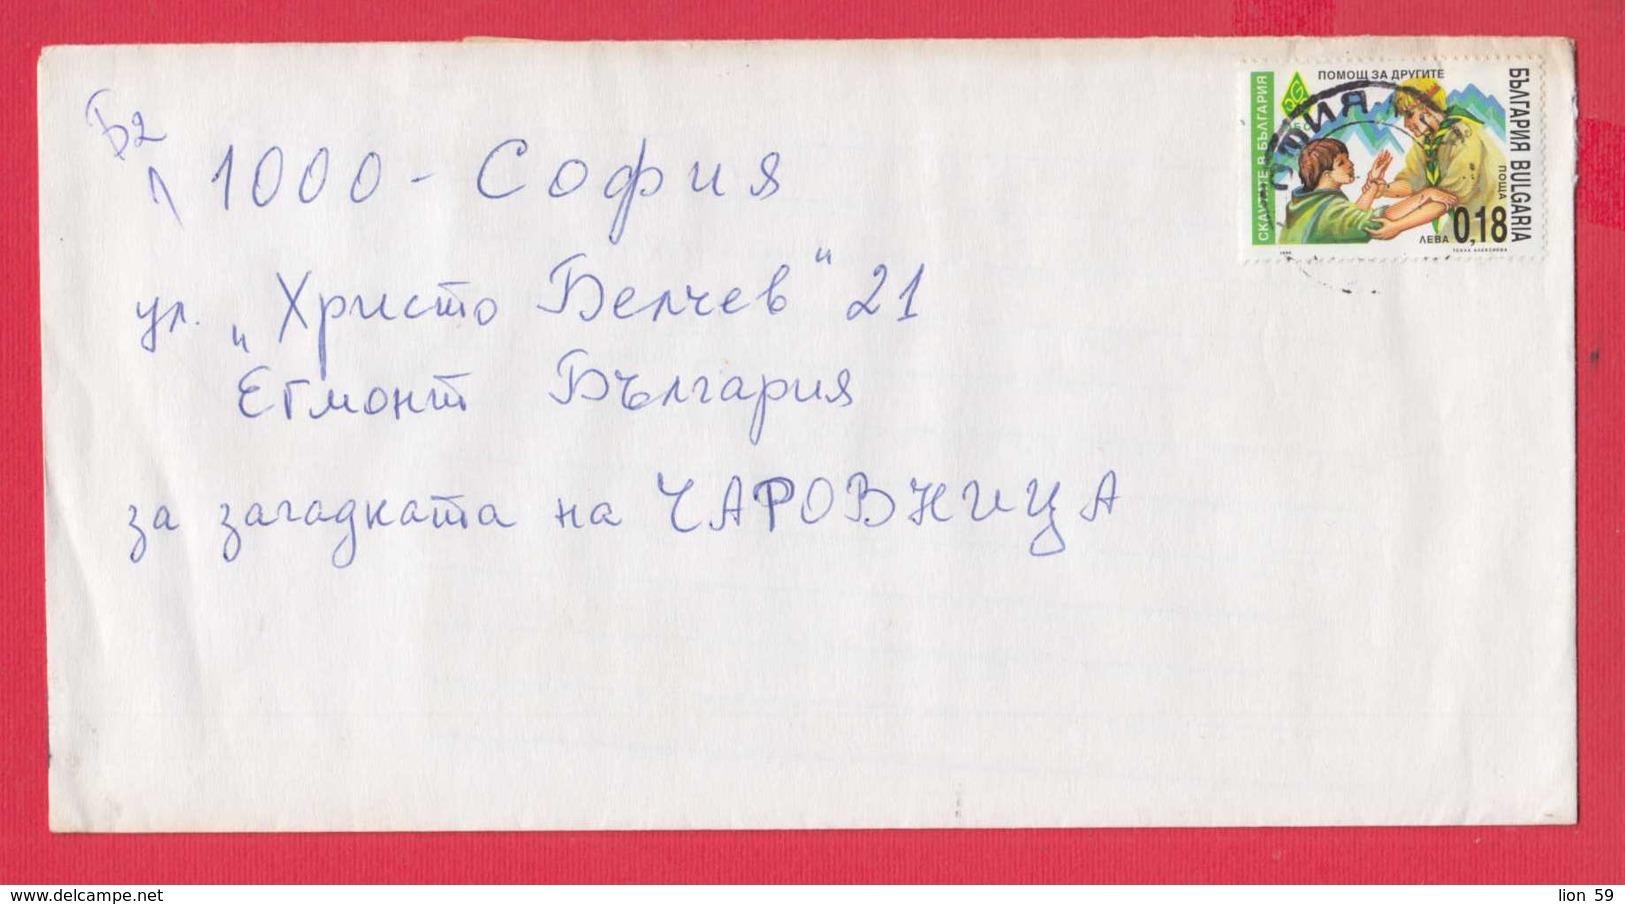 Б2
1000 - София
ул. „Христо Белчев" 21
Егмонт България
за загадката на ЧАРОВНИЦА
ПОМОЩ ЗА ДРУГИТЕ
СКАУТИТЕ В БЪЛГАРИЯ
БЪЛГАРИЯ BULGARIA
ПОЩА
ЛЕВА 0,18
www.delcampe.net
lion 59